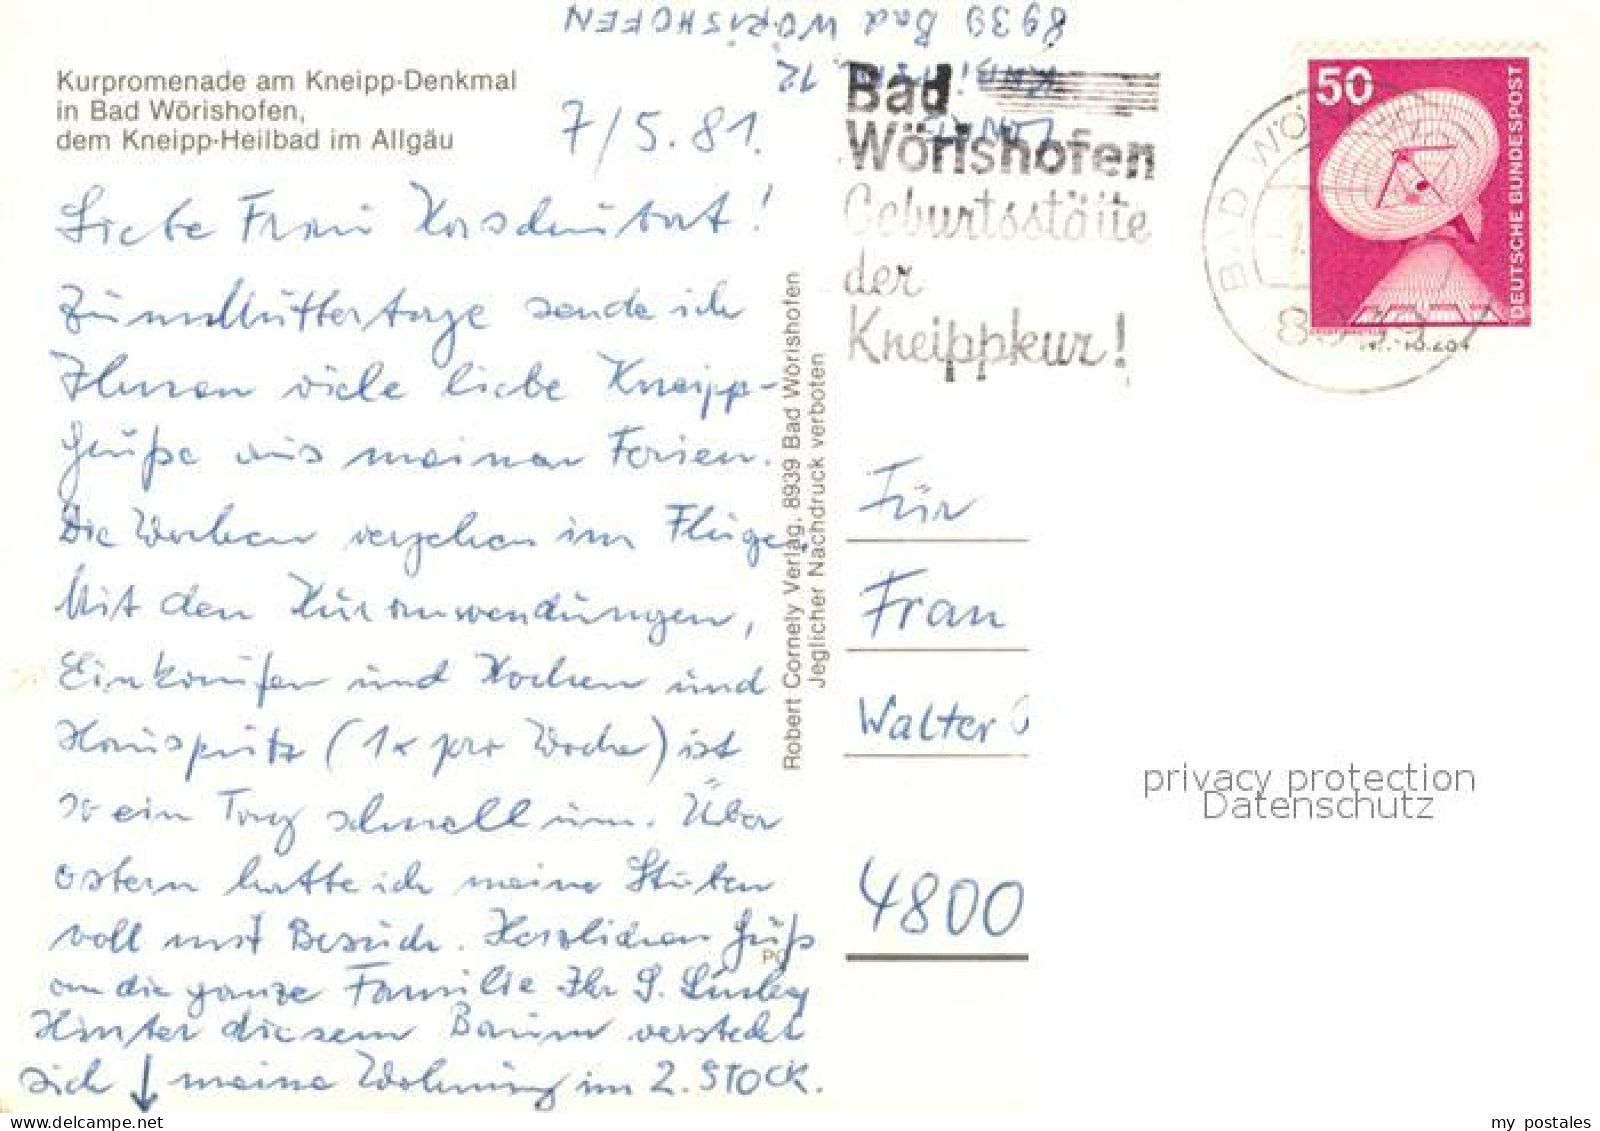 8939 Bad WÖRISHOFEN
12
Kurpromenade am Kneipp-Denkmal
in Bad Wörishofen,
dem Kneipp-Heilbad im Allgäu
7/5.81.
Liebe Frau
Zum Muttertage sende ich
Ihnen viele liebe Kneipp-
Grüße aus meinen Ferien.
Die Wochen vergehen im Fluge.
Mit den Kuranwendungen,
Einkaufen und Kochen und
Hausputz (1x pro Woche) ist
so ein Tag schnell um. Über
Ostern hatte ich meine Stuben
voll mit Besuch. Herzlichen Gruß
an die ganze Familie Ihr
Hinter diesem Baum versteckt
sich ↓ meine Wohnung im 2. STOCK.
Robert Cornely Verlag, 8939 Bad Wörishofen
Jeglicher Nachdruck verboten
Bad
Wörishofen
Geburtsstätte
der
Kneippkur!
50
DEUTSCHE BUNDESPOST
BAD WÖ
Für
Frau
Walter
4800
privacy protection
Datenschutz
my postales